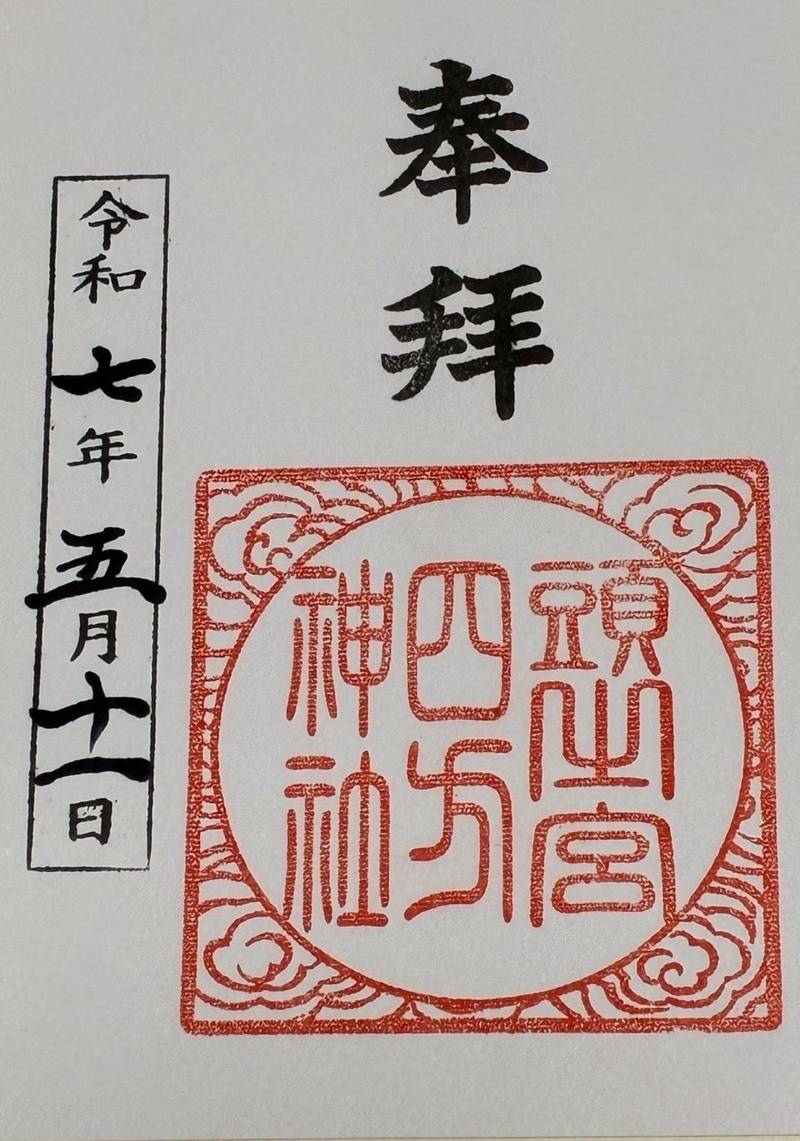 奉拜
頭之宮
四方
神社
令和七年五月十一日